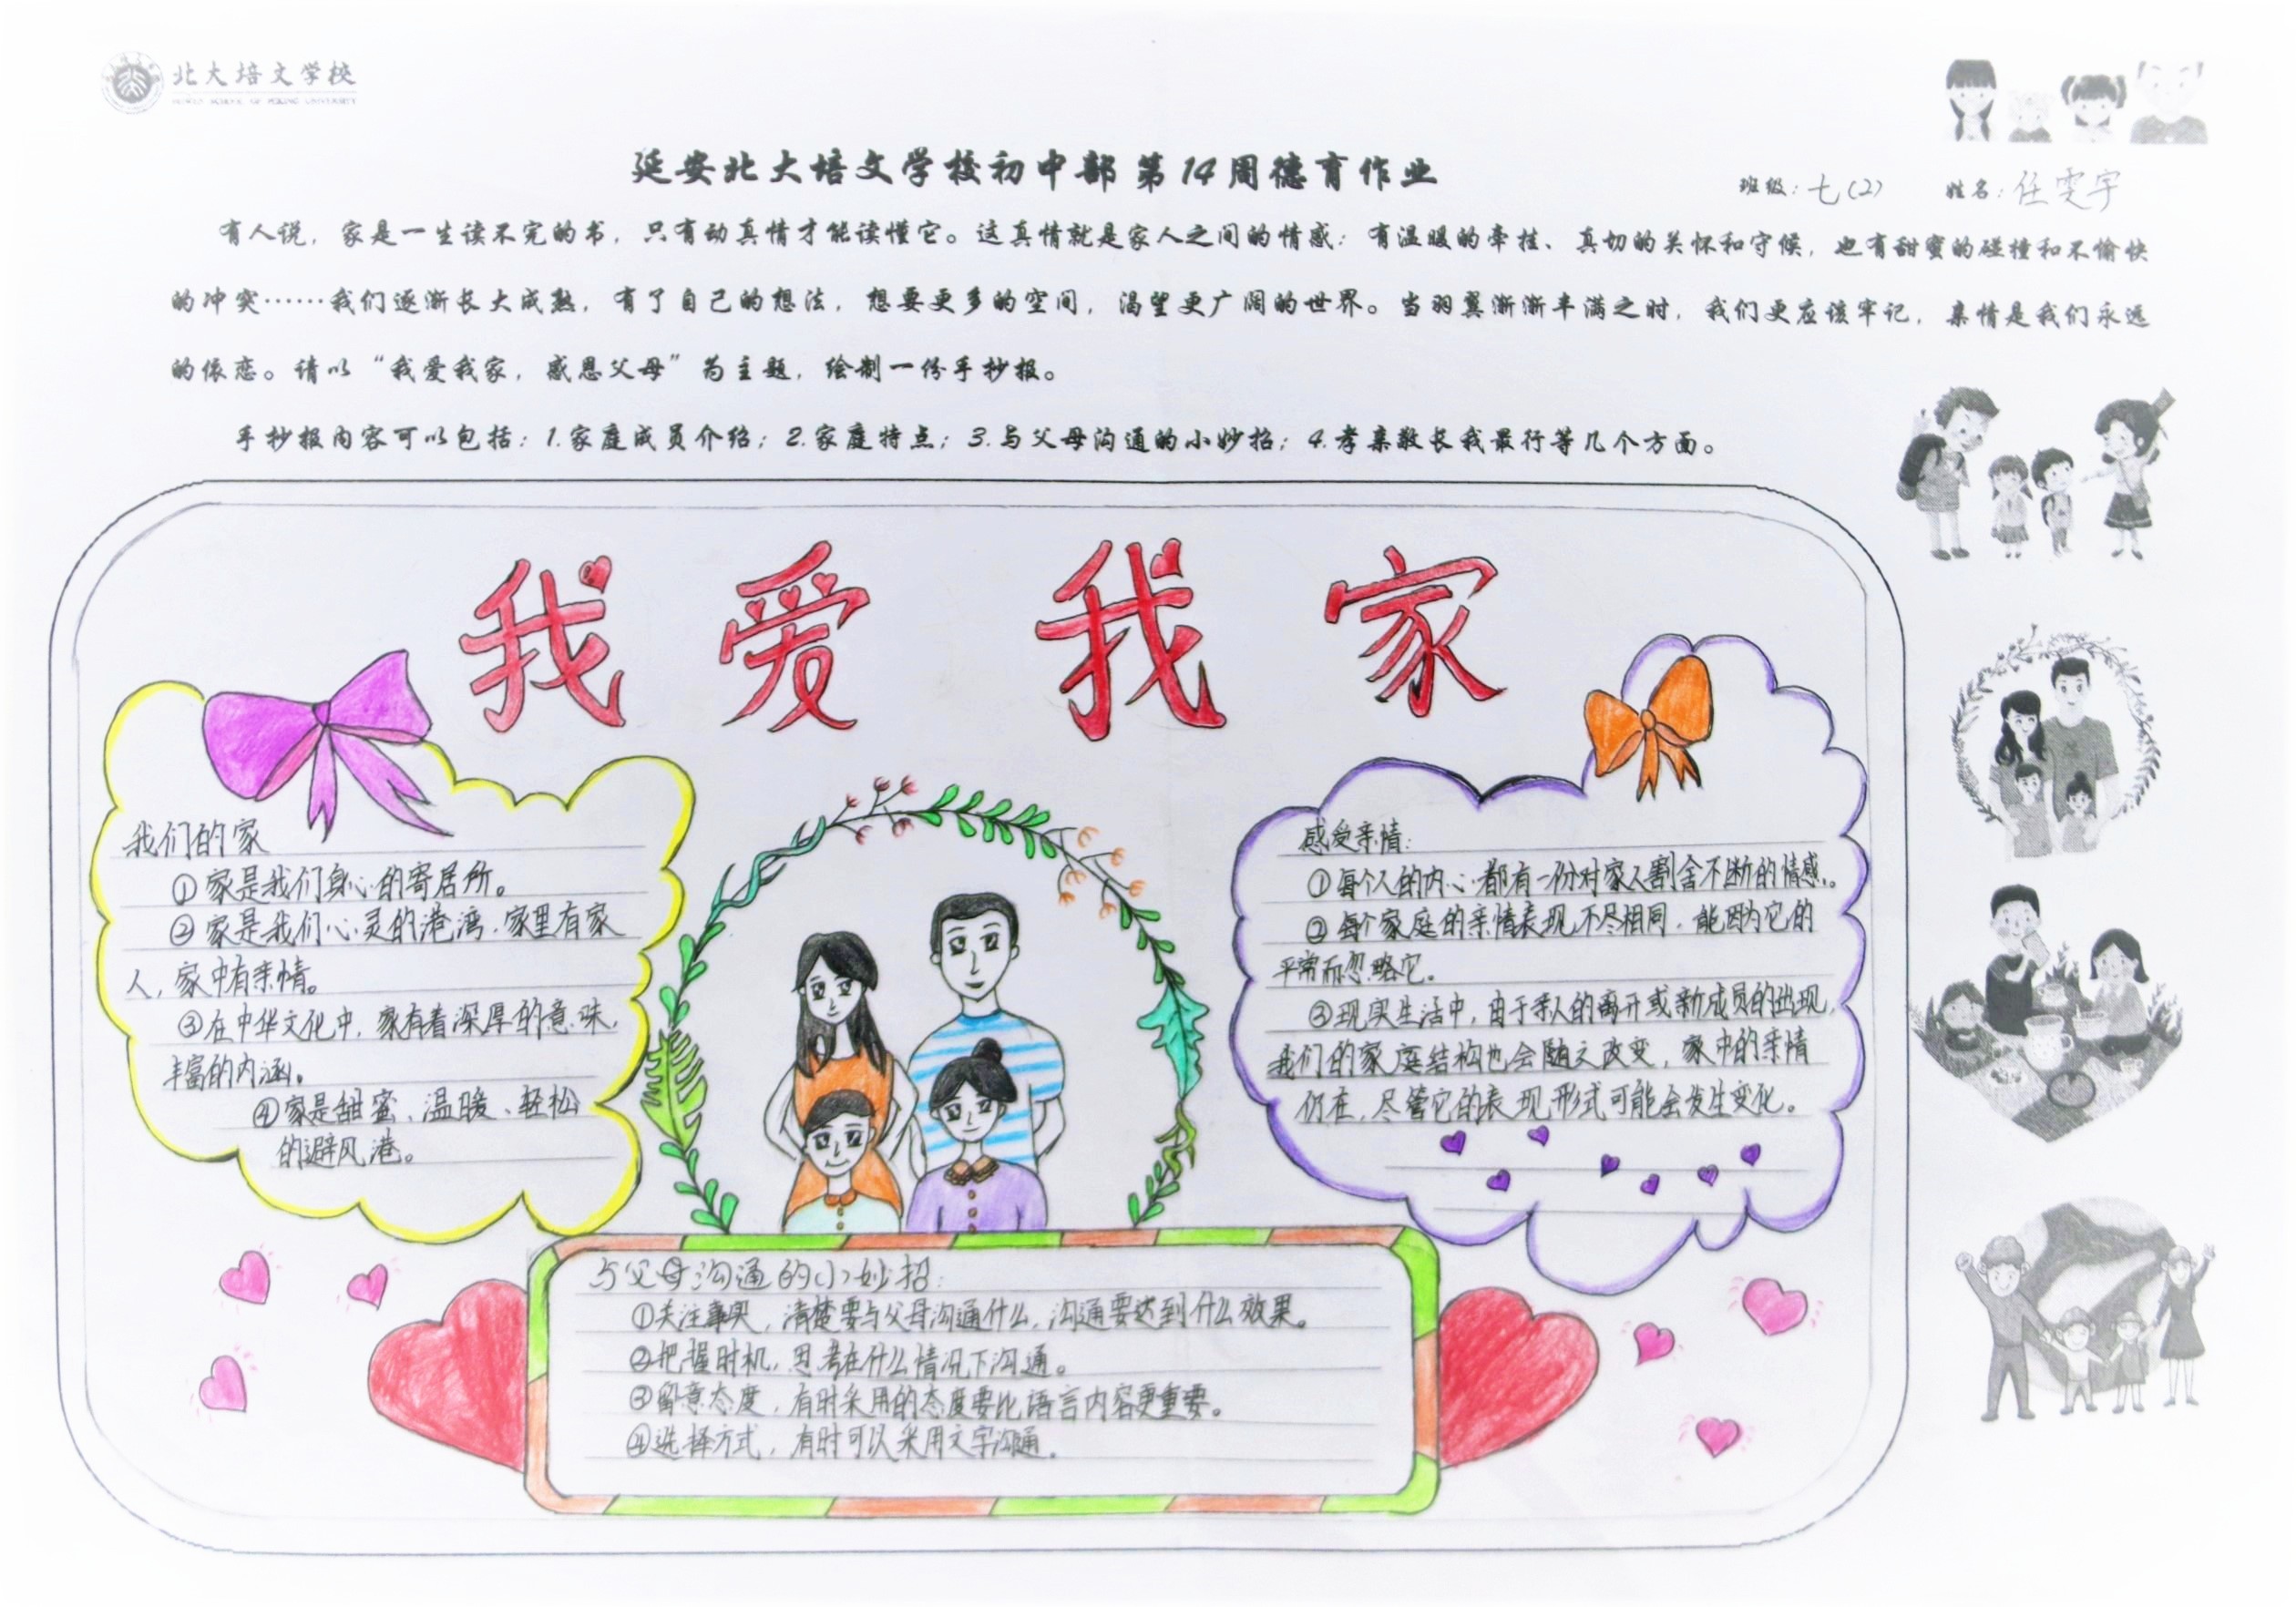 北大培文学校
PEIWEN SCHOOL OF PEKING UNIVERSITY
延安北大培文学校初中部第14周德育作业
班级：七(2) 姓名：任雯宇
有人说，家是一生读不完的书，只有动真情才能读懂它。这真情就是家人之间的情感：有温暖的牵挂、真切的关怀和守候，也有甜蜜的碰撞和不愉快
的冲突……我们逐渐长大成熟，有了自己的想法，想要更多的空间，渴望更广阔的世界。当羽翼渐渐丰满之时，我们更应该牢记，亲情是我们永远
的依恋。请以“我爱我家，感恩父母”为主题，绘制一份手抄报。
手抄报内容可以包括：1.家庭成员介绍；2.家庭特点；3.与父母沟通的小妙招；4.孝亲敬长我最行等几个方面。
我爱我家
我们的家
①家是我们身心的寄居所。
②家是我们心灵的港湾，家里有家
人，家中有亲情。
③在中华文化中，家有着深厚的意味，
丰富的内涵。
④家是甜蜜、温暖、轻松
的避风港。
感受亲情：
①每个人的内心都有一份对家人割舍不断的情感。
②每个家庭的亲情表现不尽相同，能因为它的
平常而忽略它。
③现实生活中，由于亲人的离开或新成员的出现，
我们的家庭结构也会随之改变，家中的亲情
仍在，尽管它的表现形式可能会发生变化。
与父母沟通的小妙招：
①关注事实，清楚要与父母沟通什么，沟通要达到什么效果。
②把握时机，思考在什么情况下沟通。
③留意态度，有时采用的态度要比语言内容更重要。
④选择方式，有时可以采用文字沟通。